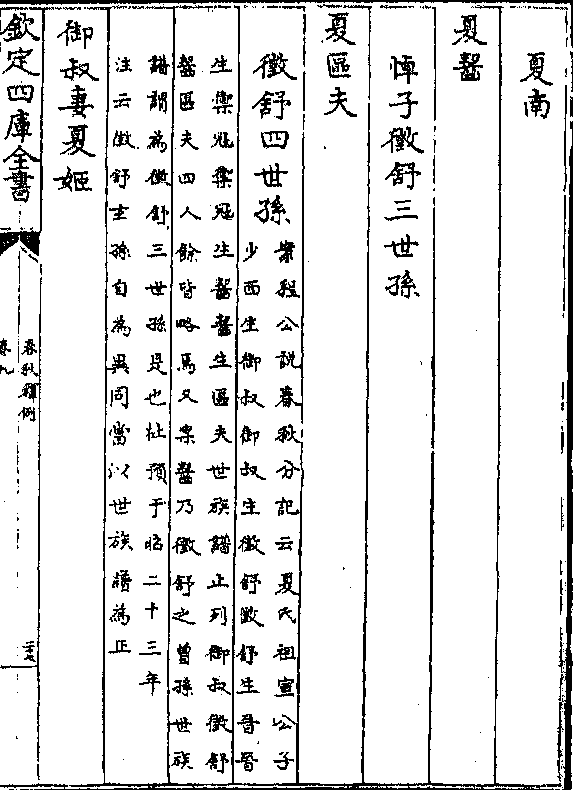 夏南
夏齧
悼子徵舒三世孫
夏區夫
徵舒四世孫
案程公説春秋分記云夏氏祖宣公子
少西生御叔御叔生徵舒徵舒生晉晉
生禦冦禦冦生齧齧生區夫世族譜止列御叔徵舒
齧區夫四人餘皆略焉又案齧乃徵舒之曾孫世族
譜謂為徵舒三世孫是也杜預于昭二十三年
注云徵舒玄孫自為異同當以世族譜為正
御叔妻夏姬
欽定四庫全書
春秋釋例
卷九